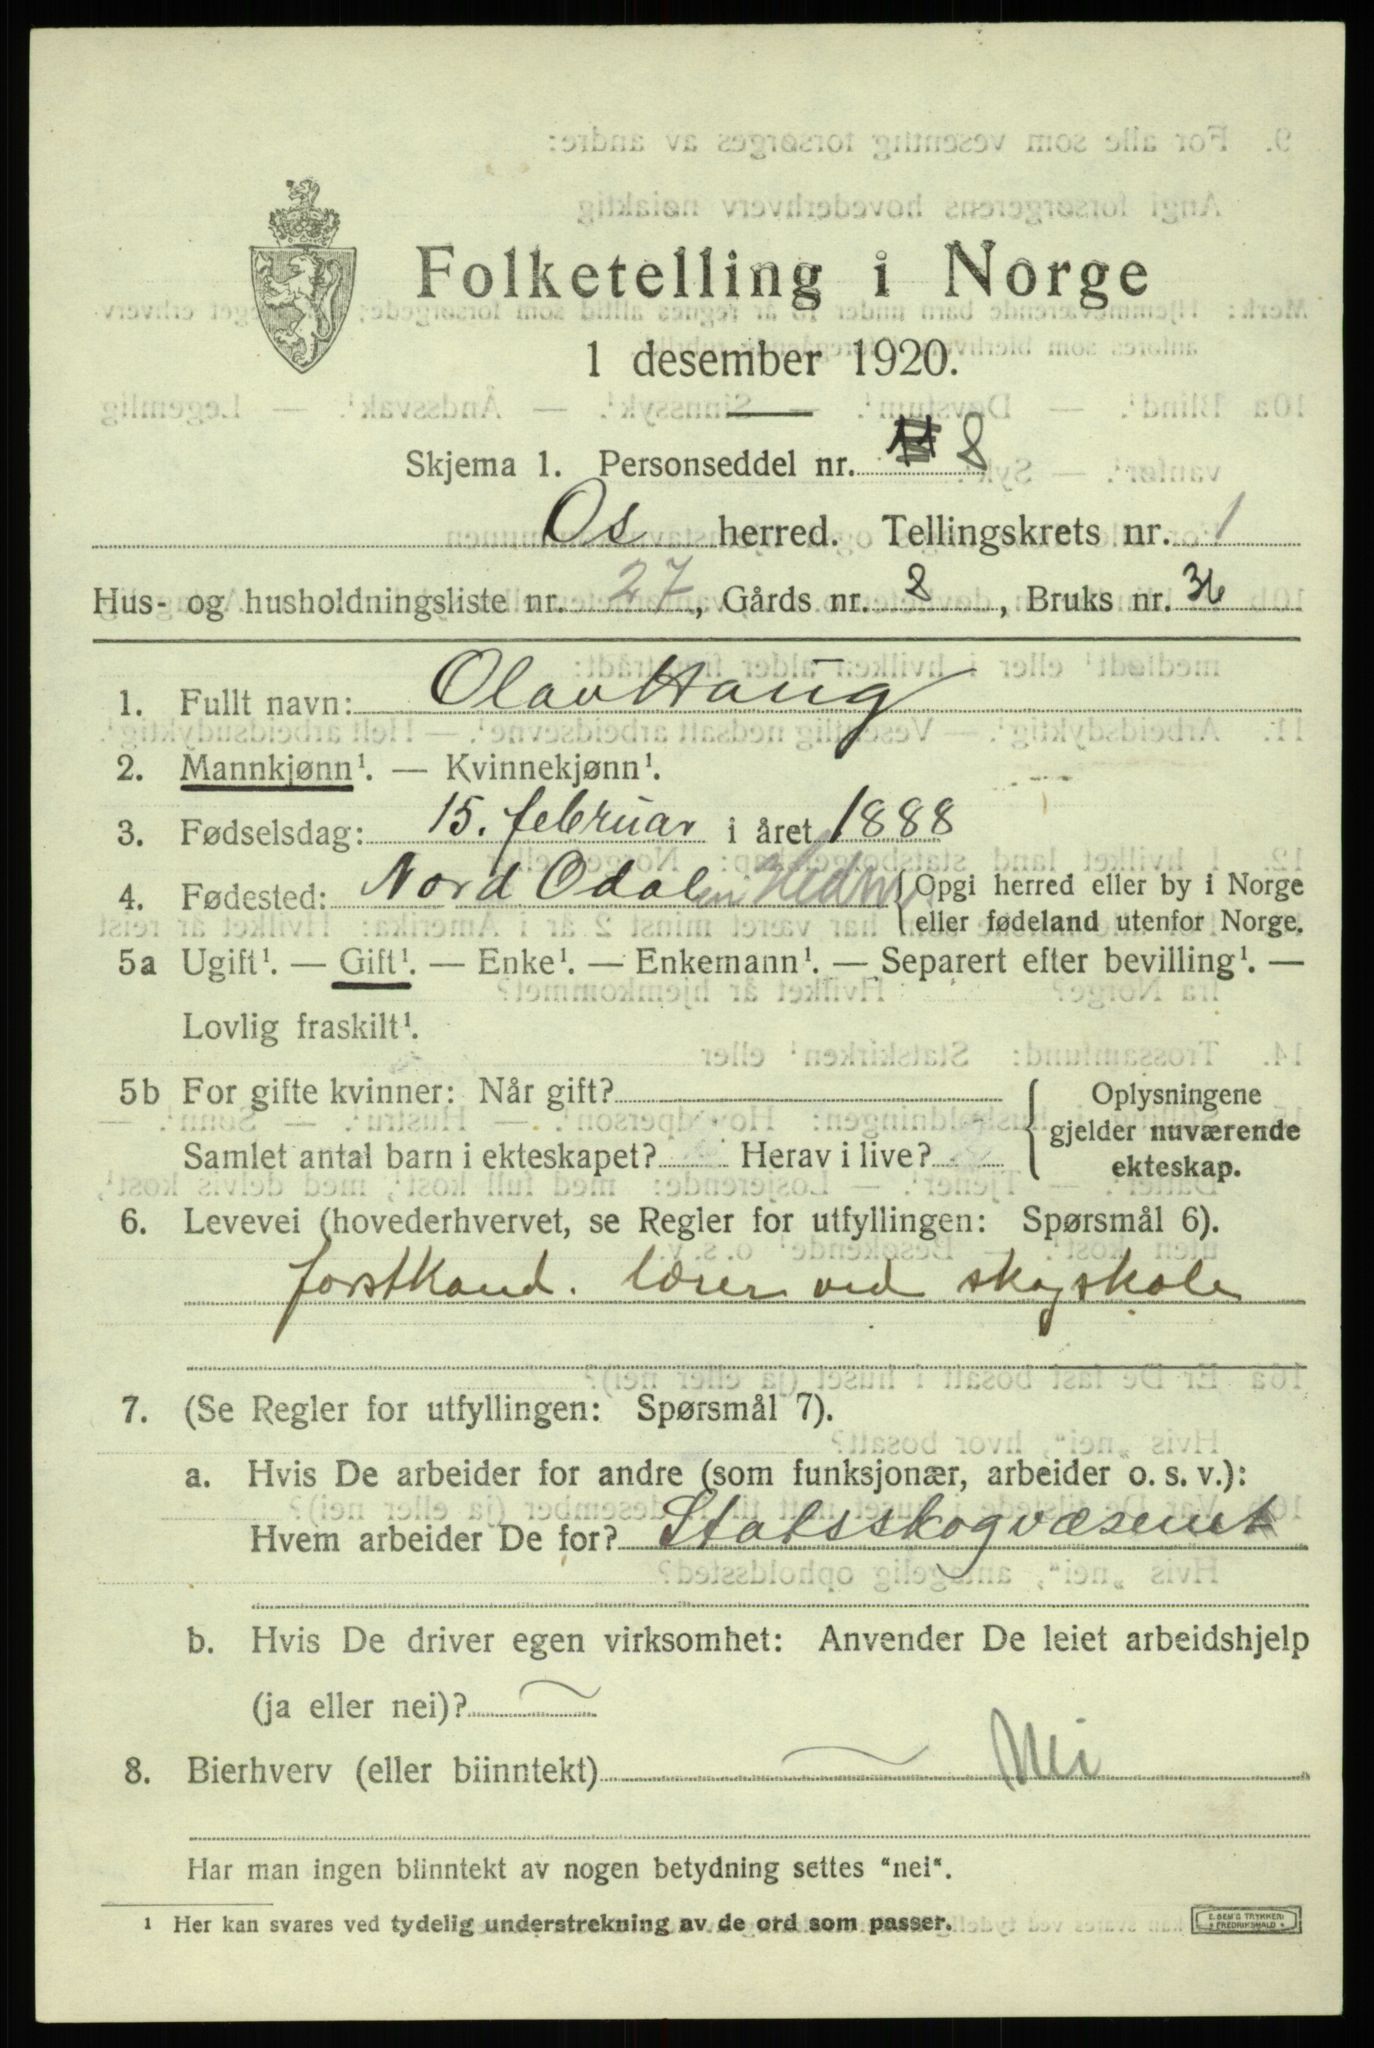 Folketelling i Norge
1 desember 1920.
Skjema 1. Personseddel nr. 8
Os herred. Tellingskrets nr. 1
Hus- og husholdningsliste nr. 27, Gårds nr. 8, Bruks nr. 36
1. Fullt navn: Olav Haug
2. Mannkjønn¹. — Kvinnekjønn¹.
3. Fødselsdag: 15. februar i året 1888
4. Fødested: Nord Odalen Hedm. Opgi herred eller by i Norge
eller fødeland utenfor Norge.
5a Ugift¹. — Gift¹. — Enke¹. — Enkemann¹. — Separert efter bevilling¹. —
Lovlig fraskilt¹.
5b For gifte kvinner: Når gift? Oplysningene
gjelder nuværende
Samlet antal barn i ekteskapet? Herav i live? ekteskap.
6. Levevei (hovederhvervet, se Regler for utfyllingen: Spørsmål 6).
forstkand. lærer ved skogskole
7. (Se Regler for utfyllingen: Spørsmål 7).
a. Hvis De arbeider for andre (som funksjonær, arbeider o. s. v.):
Hvem arbeider De for? Statsskogvæsenet
b. Hvis De driver egen virksomhet: Anvender De leiet arbeidshjelp
(ja eller nei)? —
8. Bierhverv (eller biinntekt) — Nei
Har man ingen biinntekt av nogen betydning settes "nei".
1 Her kan svares ved tydelig understrekning av de ord som passer.
E. SEM'S TRYKKERI
FREDRIKSHALD